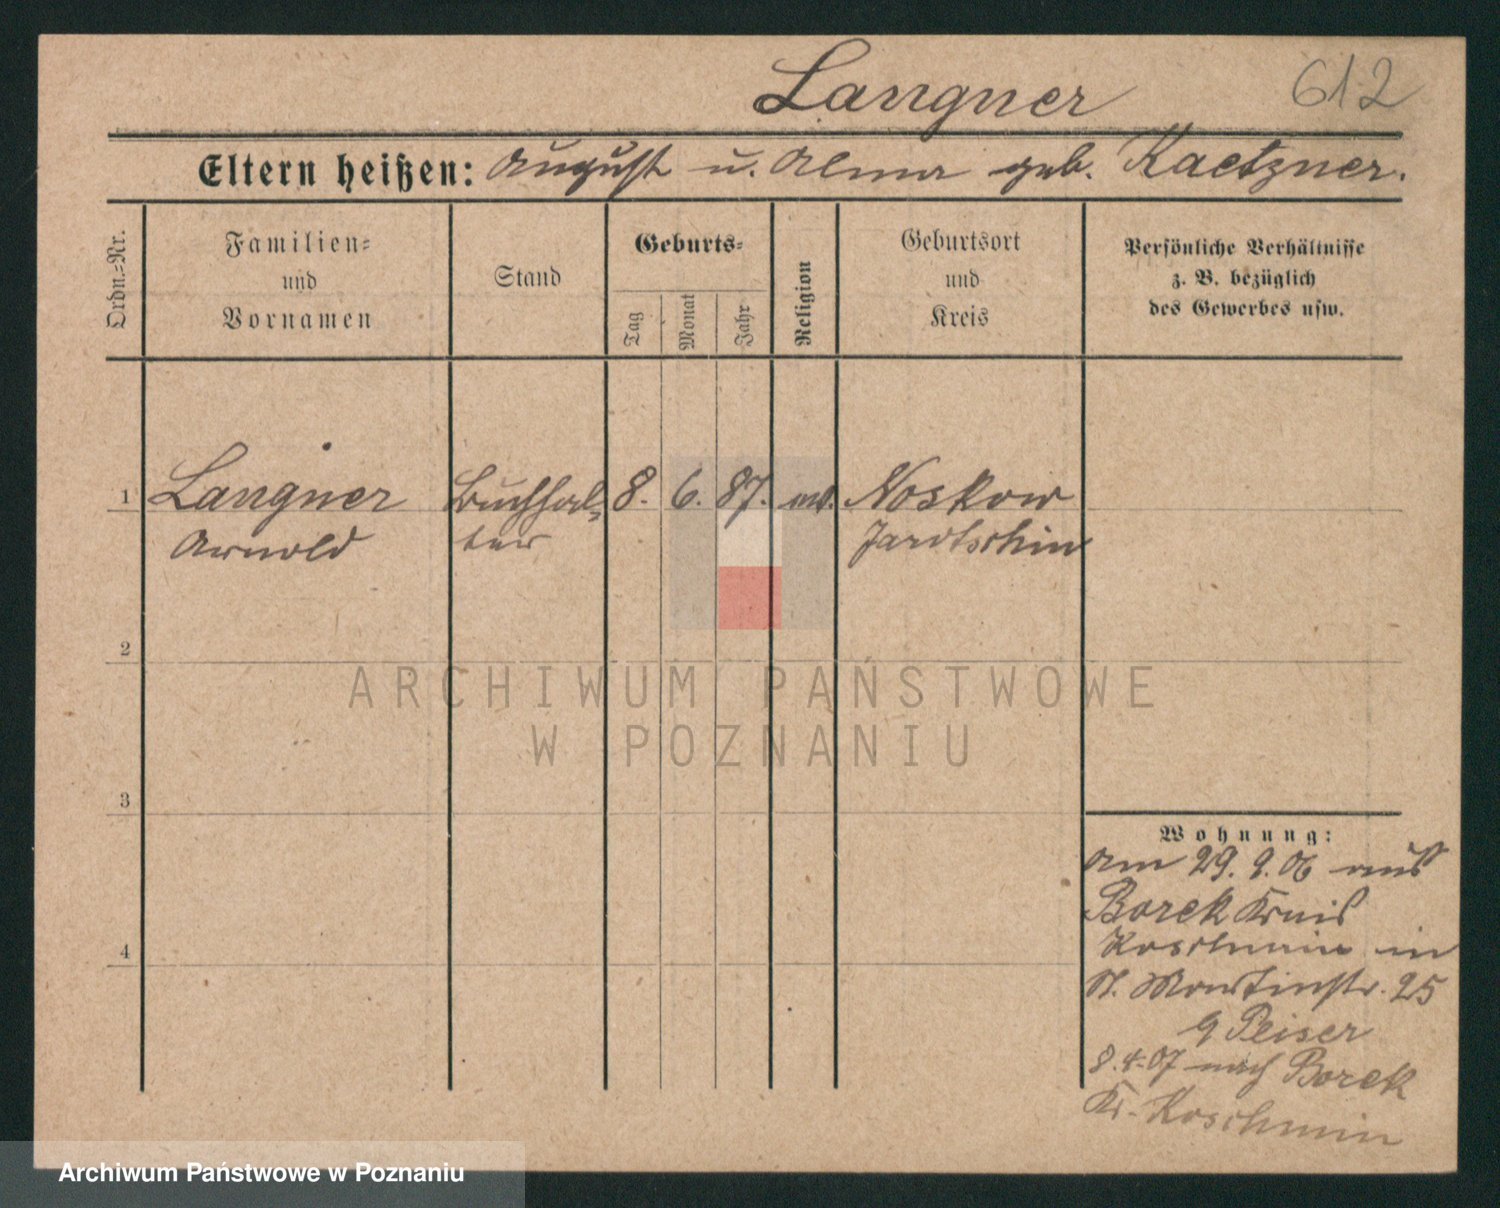 Langner 612
Eltern heißen: August u. Alma geb. Kaetzner.
Ordn.=Nr.
Familien=
und
Vornamen
Stand
Geburts=
Tag
Monat
Jahr
Religion
Geburtsort
und
Kreis
Persönliche Verhältnisse
z. B. bezüglich
des Gewerbes usw.
1 Langner Buchhal= 8. 6. 87. Noskow
Arnold ter Jarotschin
2
ARCHIWUM PAŃSTWOWE
W POZNANIU
3
Wohnung:
am 29. 9. 06 aus
Borek Kreis
Koschmin in
St. Martinstr. 25
Peiser
8.4.07 nach Borek
Kr. Koschmin
4
Archiwum Państwowe w Poznaniu